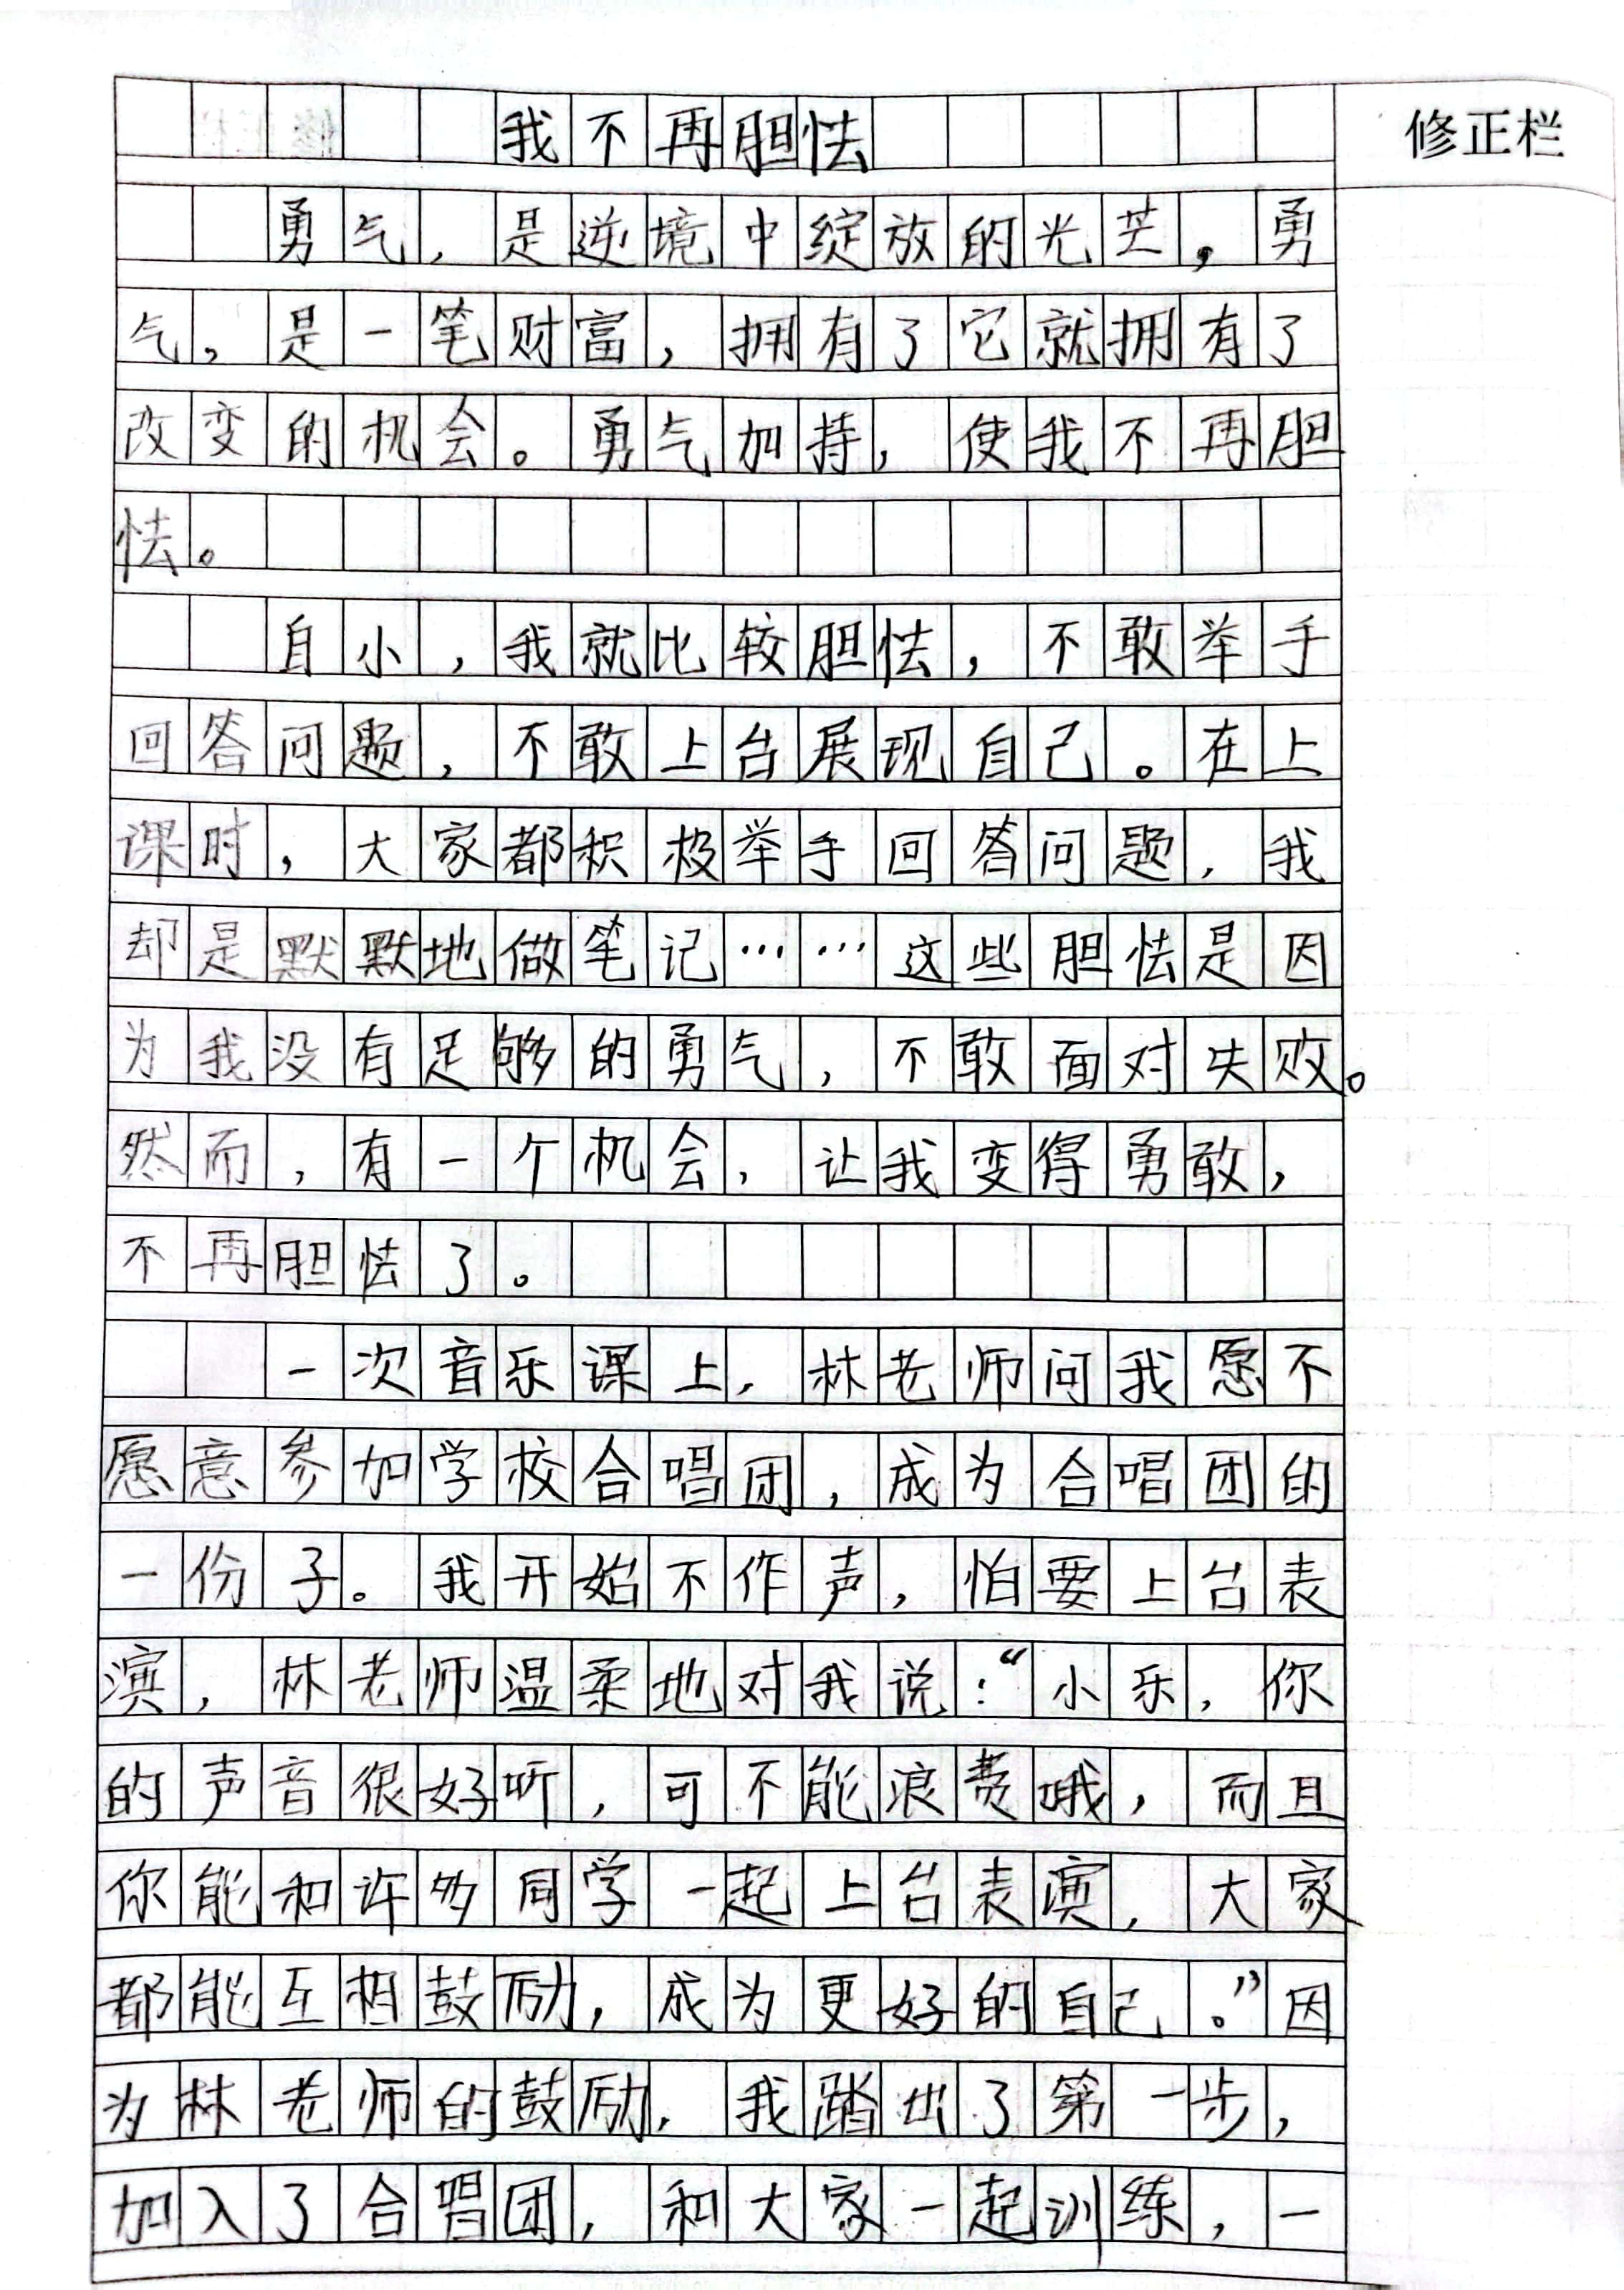 我不再胆怯
修正栏
勇气，是逆境中绽放的光芒，勇
气，是一笔财富，拥有了它就拥有了
改变的机会。勇气加持，使我不再胆
怯。
自小，我就比较胆怯，不敢举手
回答问题，不敢上台展现自己。在上
课时，大家都积极举手回答问题，我
却是默默地做笔记……这些胆怯是因
为我没有足够的勇气，不敢面对失败。
然而，有一个机会，让我变得勇敢，
不再胆怯了。
一次音乐课上，林老师问我愿不
愿意参加学校合唱团，成为合唱团的
一份子。我开始不作声，怕要上台表
演，林老师温柔地对我说：“小乐，你
的声音很好听，可不能浪费哦，而且
你能和许多同学一起上台表演，大家
都能互相鼓励，成为更好的自己。”因
为林老师的鼓励，我踏出了第一步，
加入了合唱团，和大家一起训练，一